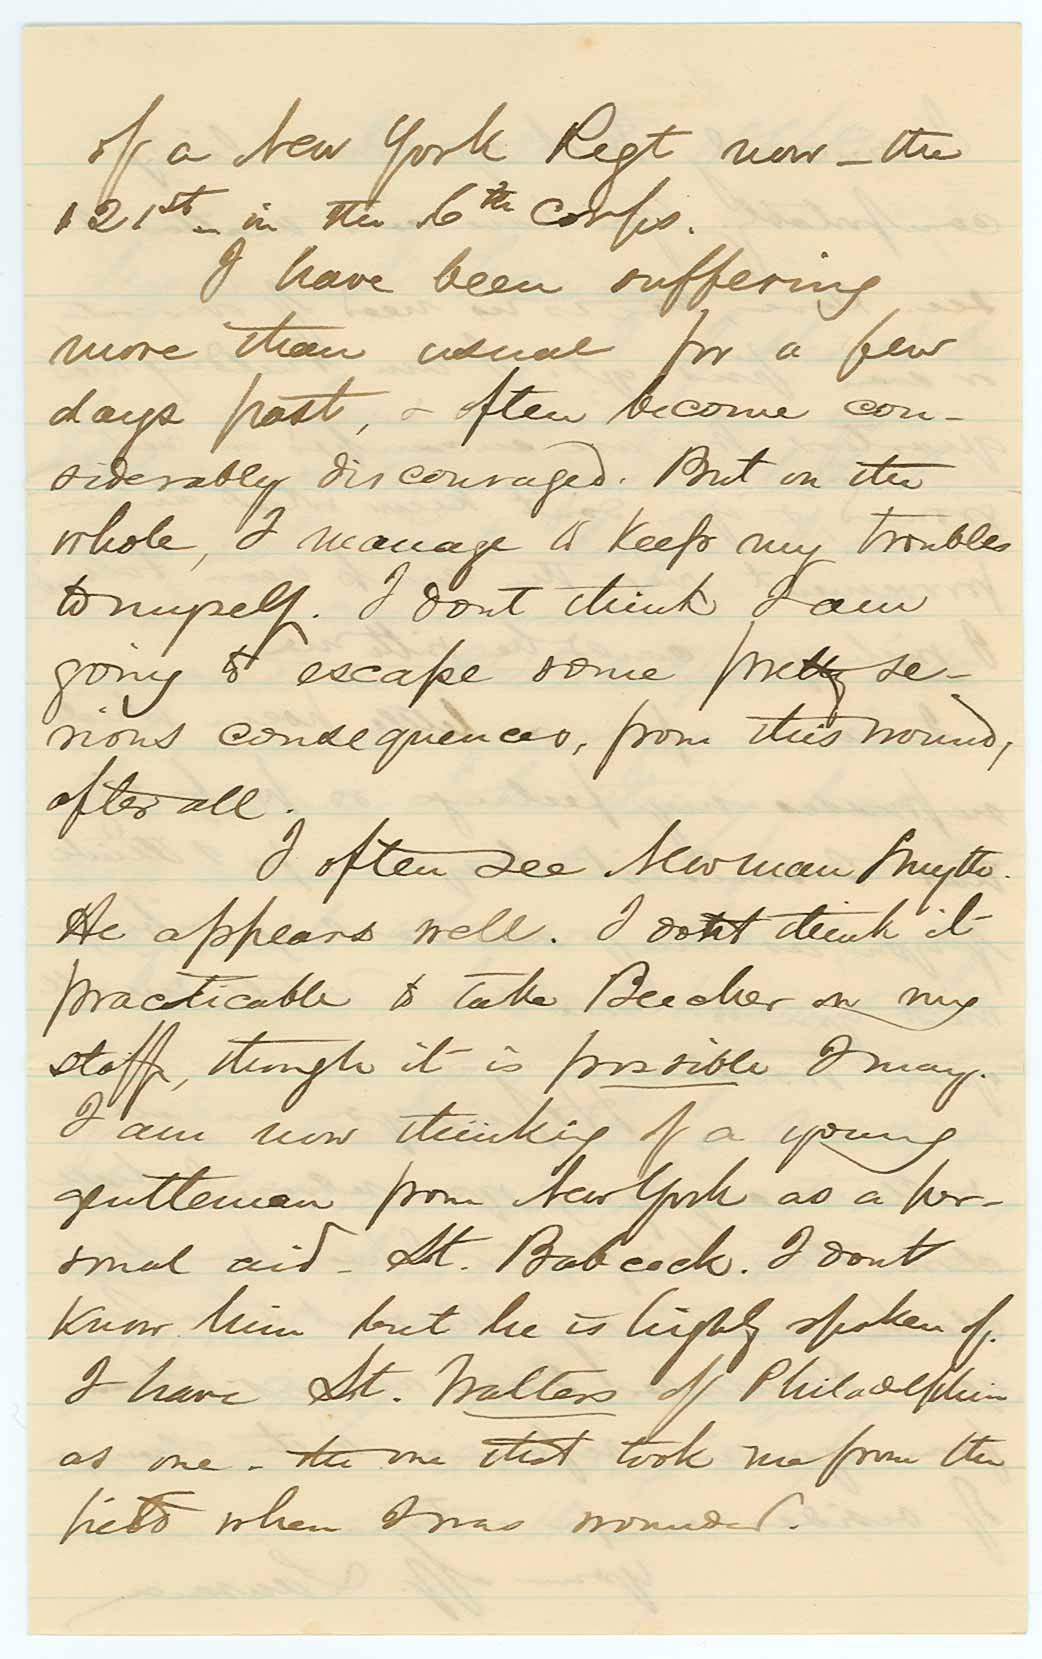 of a New York Regt now – the
121st – in the 6th Corps.
I have been suffering
more than usual for a few
days past, & often become con-
siderably discouraged. But on the
whole, I manage to keep my troubles
to myself. I dont think I am
going to escape some pretty se-
rious consequences, from this wound,
after all.
I often see Newman Smyth.
He appears well. I dont think it
practicable to take Beecher on my
staff, though it is possible I may.
I am now thinking of a young
gentleman from New York as a per-
sonal aid – Lt. Babcock. I dont
know him but he is highly spoken of.
I have Lt. Walters of Philadelphia
as one – the one that took me from the
field when I was wounded.